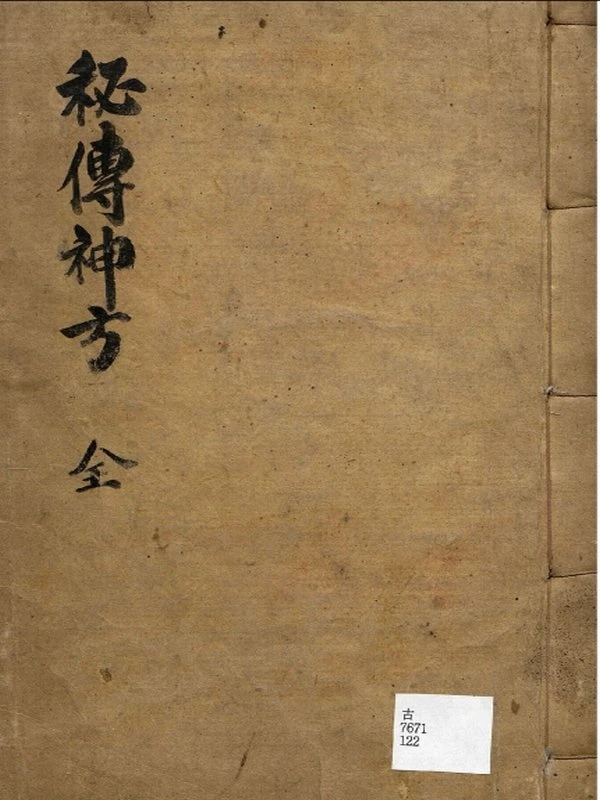 秘傳神方 全
古
7671
122